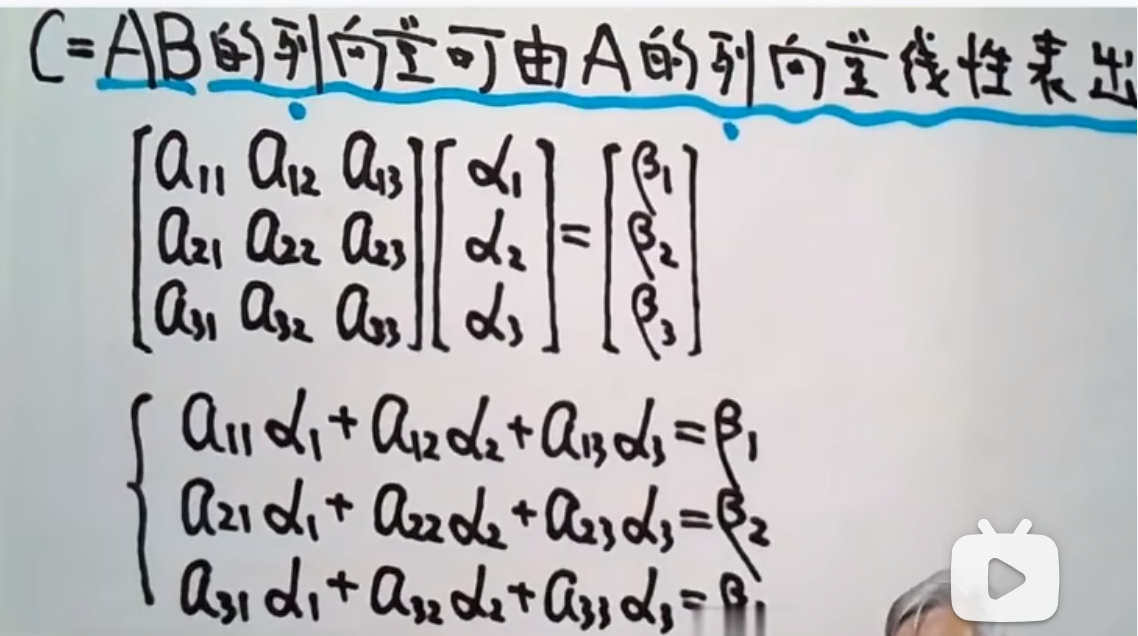 C=AB的列向量可由A的列向量线性表出
[a₁₁ a₁₂ a₁₃] [α₁] = [β₁]
[a₂₁ a₂₂ a₂₃] [α₂] = [β₂]
[a₃₁ a₃₂ a₃₃] [α₃] = [β₃]
{ a₁₁α₁+a₁₂α₂+a₁₃α₃=β₁
a₂₁α₁+a₂₂α₂+a₂₃α₃=β₂
a₃₁α₁+a₃₂α₂+a₃₃α₃=β